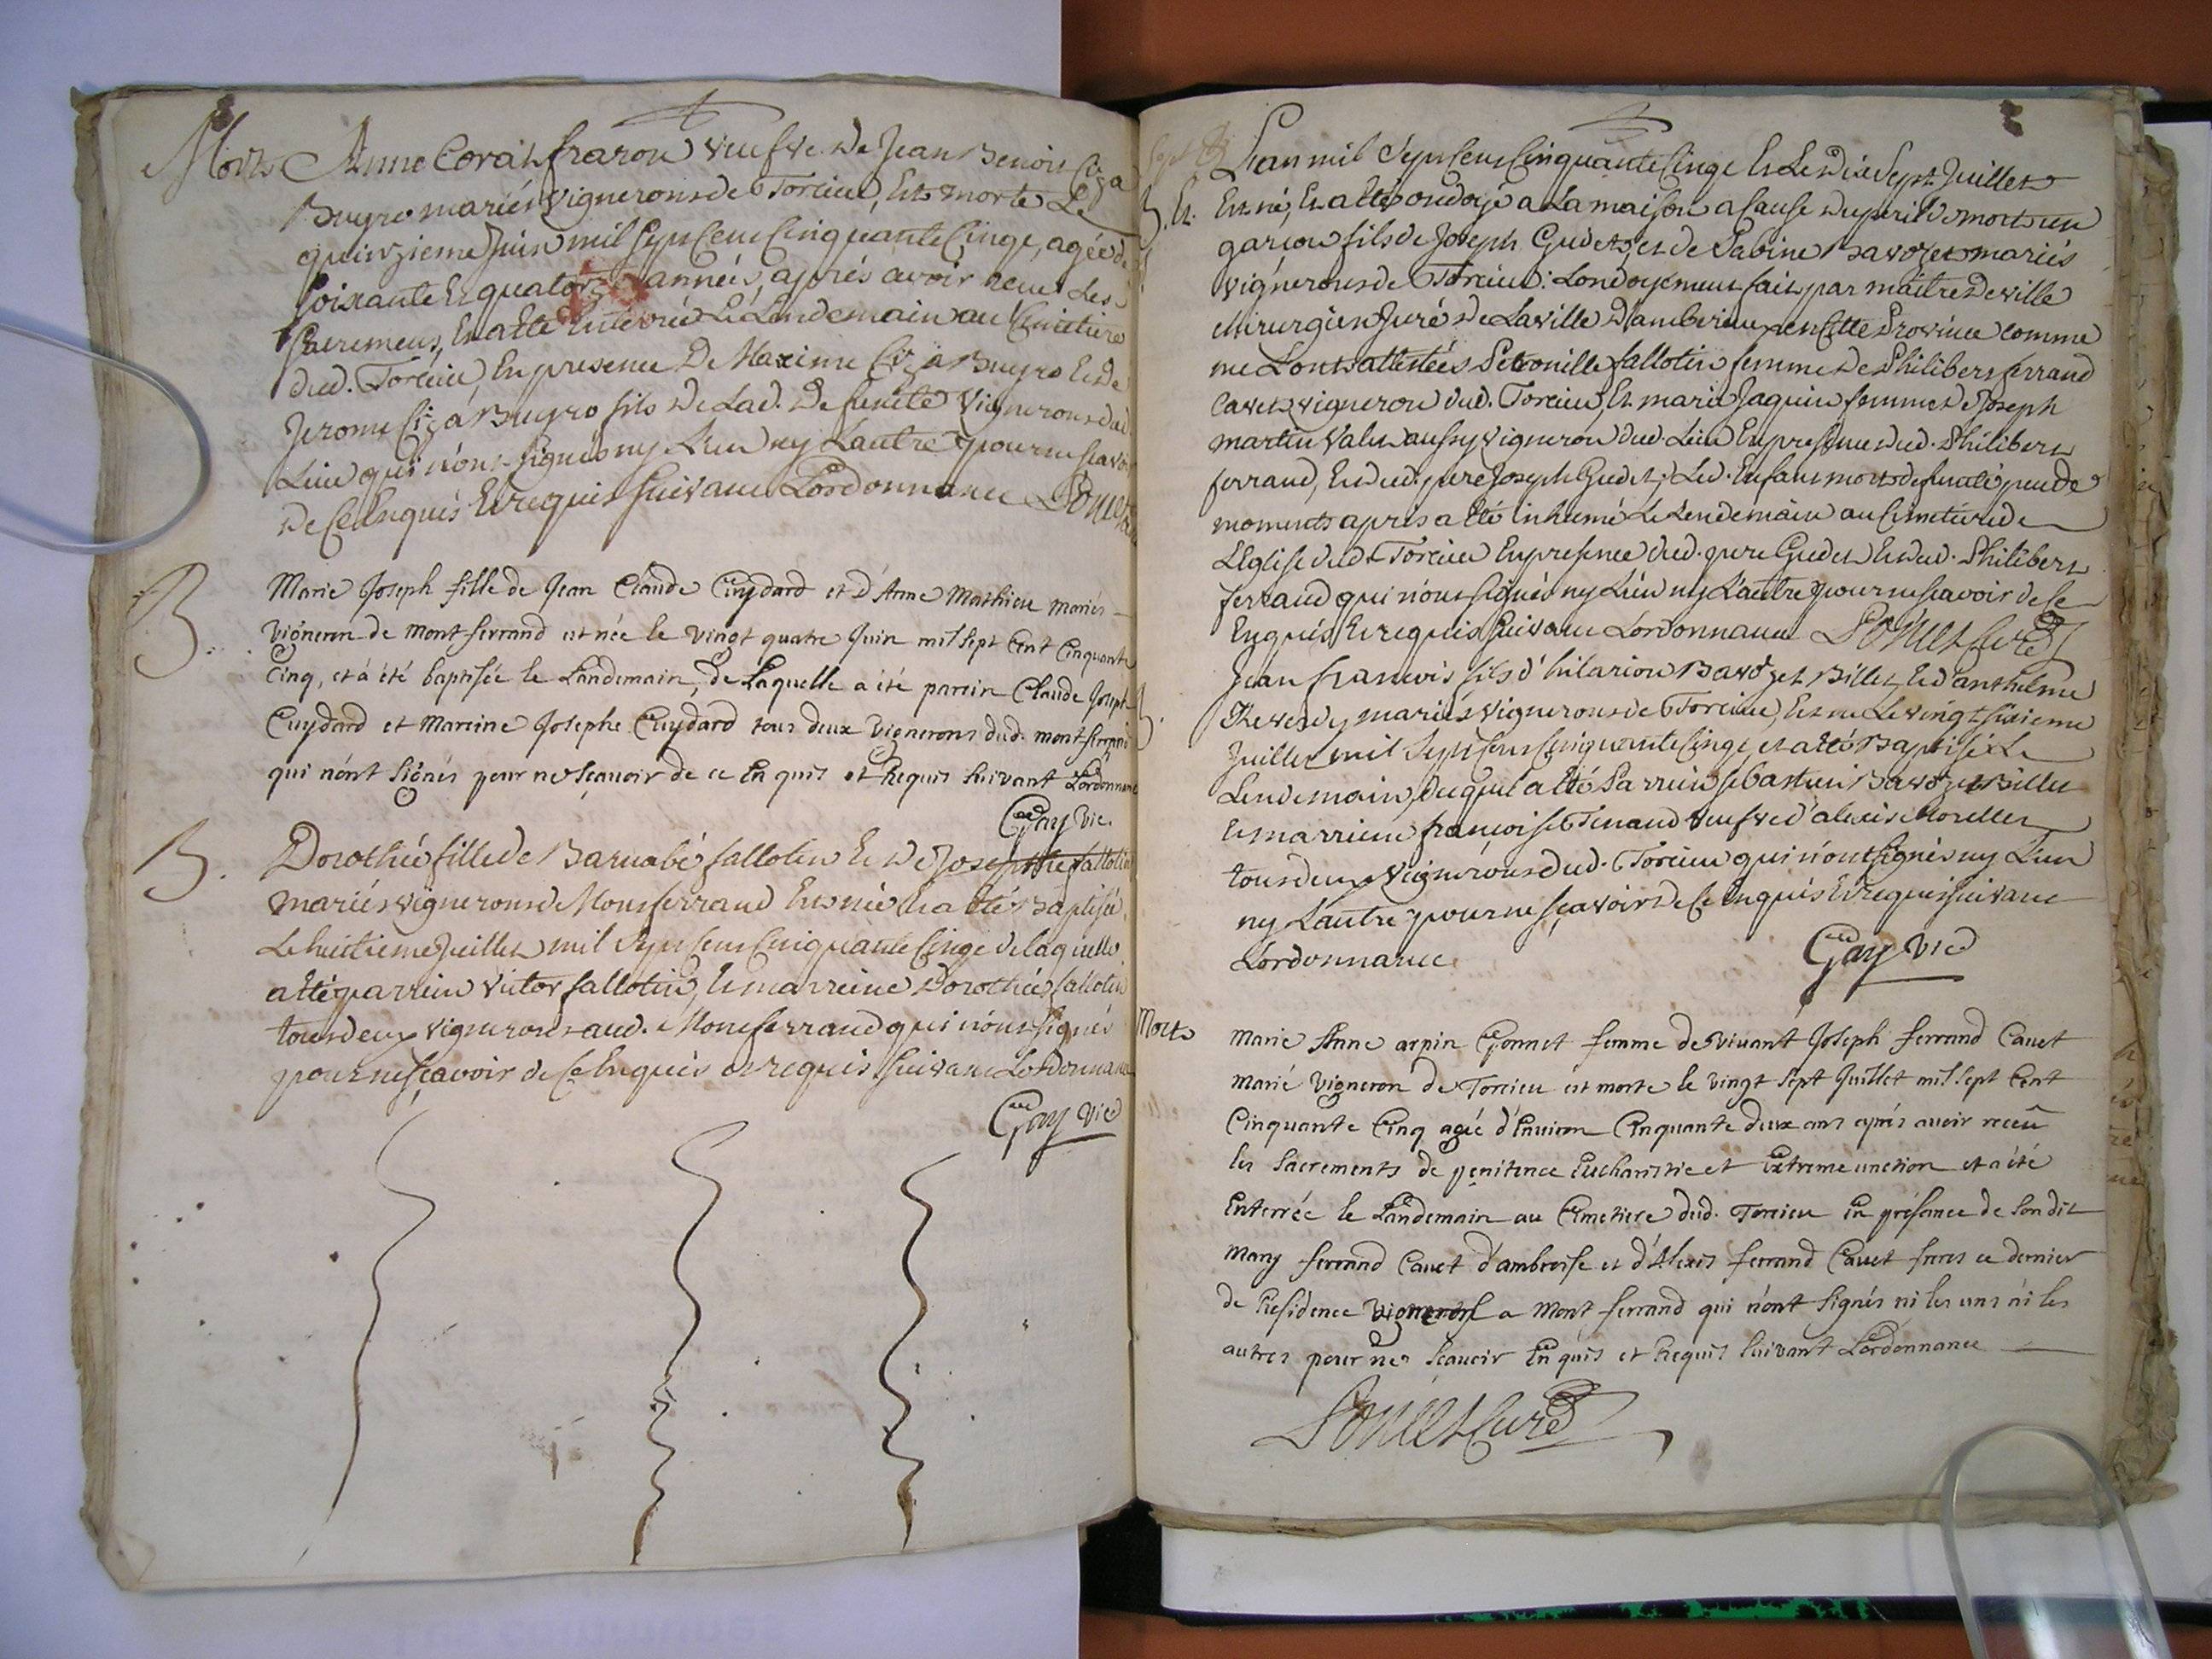 Morts Anne Corail frarou veufve de Jean Benoit Ciza
Buyro mariés vignerons de Torcieu, Est morte Le
quinzieme Juin mil sept cent cinquante cinqe, agée de
soixante et quatorze années, aprés avoir receu Les
sacremens, Et a eté Enterrée Le Lendemain au Cimetiere
dud. Torcieu, En presence De Maxime Ciza Buyro Et de
Jerome Ciza Buyro fils de Lad. Defuncte Vignerons dud.
Lieu qui n'ont signés ny L'un ny L'autre pour ne sçavoir
de ce Enquis Et requis suivant L'ordonnance
B. Marie Joseph fille de Jean Claude Cuydard et d'Anne Mathieu mariés
vigneron de montferrand est née le vingt quatre Juin mil sept Cent Cinquante
Cinq, et à été baptisée le Landemain, de Laquelle a été parein Claude Joseph
Cuydard et Mareine Josephe Cuydard tous deux vignerons dud. montferrand
qui n'ont signés pour ne sçauoir de ce En quis et Requis suivant L'ordonnance
Gay Vic.
B. Dorothée fille de Barnabé fallotin Et de Josephte fallotin
mariés vignerons de Monferrand Est née Et a eté Baptisée
Le huitieme Juillet mil sept cent cinquante cinqe de laquelle
a eté parrein Victor fallotin, Et marreine Dorothée fallotin
tous deux vignerons aud. Monferrand qui n'ont signés
pour ne sçavoir de ce Enquis et requis suivant Lordonnance
Gay Vic
L'an mil sept cent cinquante cinqe Et Le dix sept Juillet
B. Et. Est né, Et a eté ondoyé a La maison a cause du peril de mort un
garçon fils de Joseph Gudet, et de Sabine Bavozet mariés
vignerons de Torcieu: Londoyement fait par maitre Deville
chirurgien Juré de La ville D'amberieux en cette Province comme
me L'ont attestées Petronille fallotin femme de Philibert ferrand
Cavet vigneron dud. Torcieu, Et marie Jaquin femme de Joseph
martin Valet aussy vigneron dud. Lieu En presence dud. Philibert
ferrand, Et dud. pere Joseph Gudet; Led. Enfant mort defuncté peu de
moments aprés a eté inhumé Le Lendemain au Cimetiere de
L'Eglise dud. Torcieu En presence dud. pere Gudet Et dud. Philibert
ferrand qui n'ont signés ny L'un ny L'autre pour ne sçavoir de ce
Enquis Et requis suivant Lordonnance Curé
B. Jean francois fils d'hilarion Bavozet Billet, Et d'anthelme
mariés vignerons de Torcieu, Est né Le vingt sixieme
Juillet mil sept cens cinquante cinqe, et a eté Baptisé Le
Lendemain, duquel a eté Parrein sebastien Bavozet Billet
Et marreine françoise Tenaud veufve d'alexis Morellet
tous deux Vignerons dud. Torcieu qui n'ont signés ny L'un
ny L'autre pour ne sçavoir de ce Enquis Et requis suivant
Lordonnance Gay Vic
Morts Marie Anne arpin Gonnet femme de vivant Joseph ferrand Cauet
marié vigneron de Torcieu est morte le vingt sept Juillet mil sept Cent
Cinquante Cinq agée d'Enuiron Cinquante deux ans aprés auoir receû
les sacrements de penitence Eucharistie et Extreme onction et a été
Enterrée le Landemain au Cimetiere dud. Torcieu En présance de son dit
mary ferrand Cauet d'ambroise et d'Alexis ferrand Cauet freres ce dernier
de Residence vigneron a Mont ferrand qui n'ont signés ni les uns ni les
autres pour ne sçauoir En quis et Requis suivant L'ordonnance
Curé